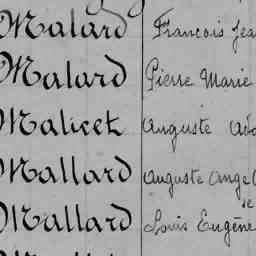 Malard François Jea
Malard Pierre Marie
Malicet Auguste Ado
Mallard Auguste Ange
Mallard Louis Eugène